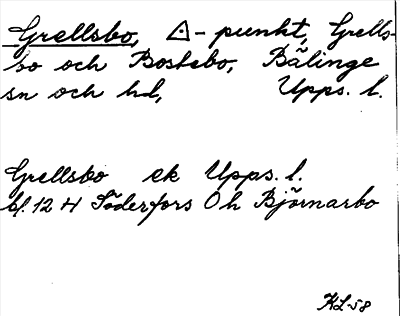 Grellsbo, △-punkt, Grells-
bo och Bostebo, Bälinge
sn och hd, Upps. l.
Grellsbo ek Upps. l.
bl. 12 H Söderfors O h Björnarbo
KL-58